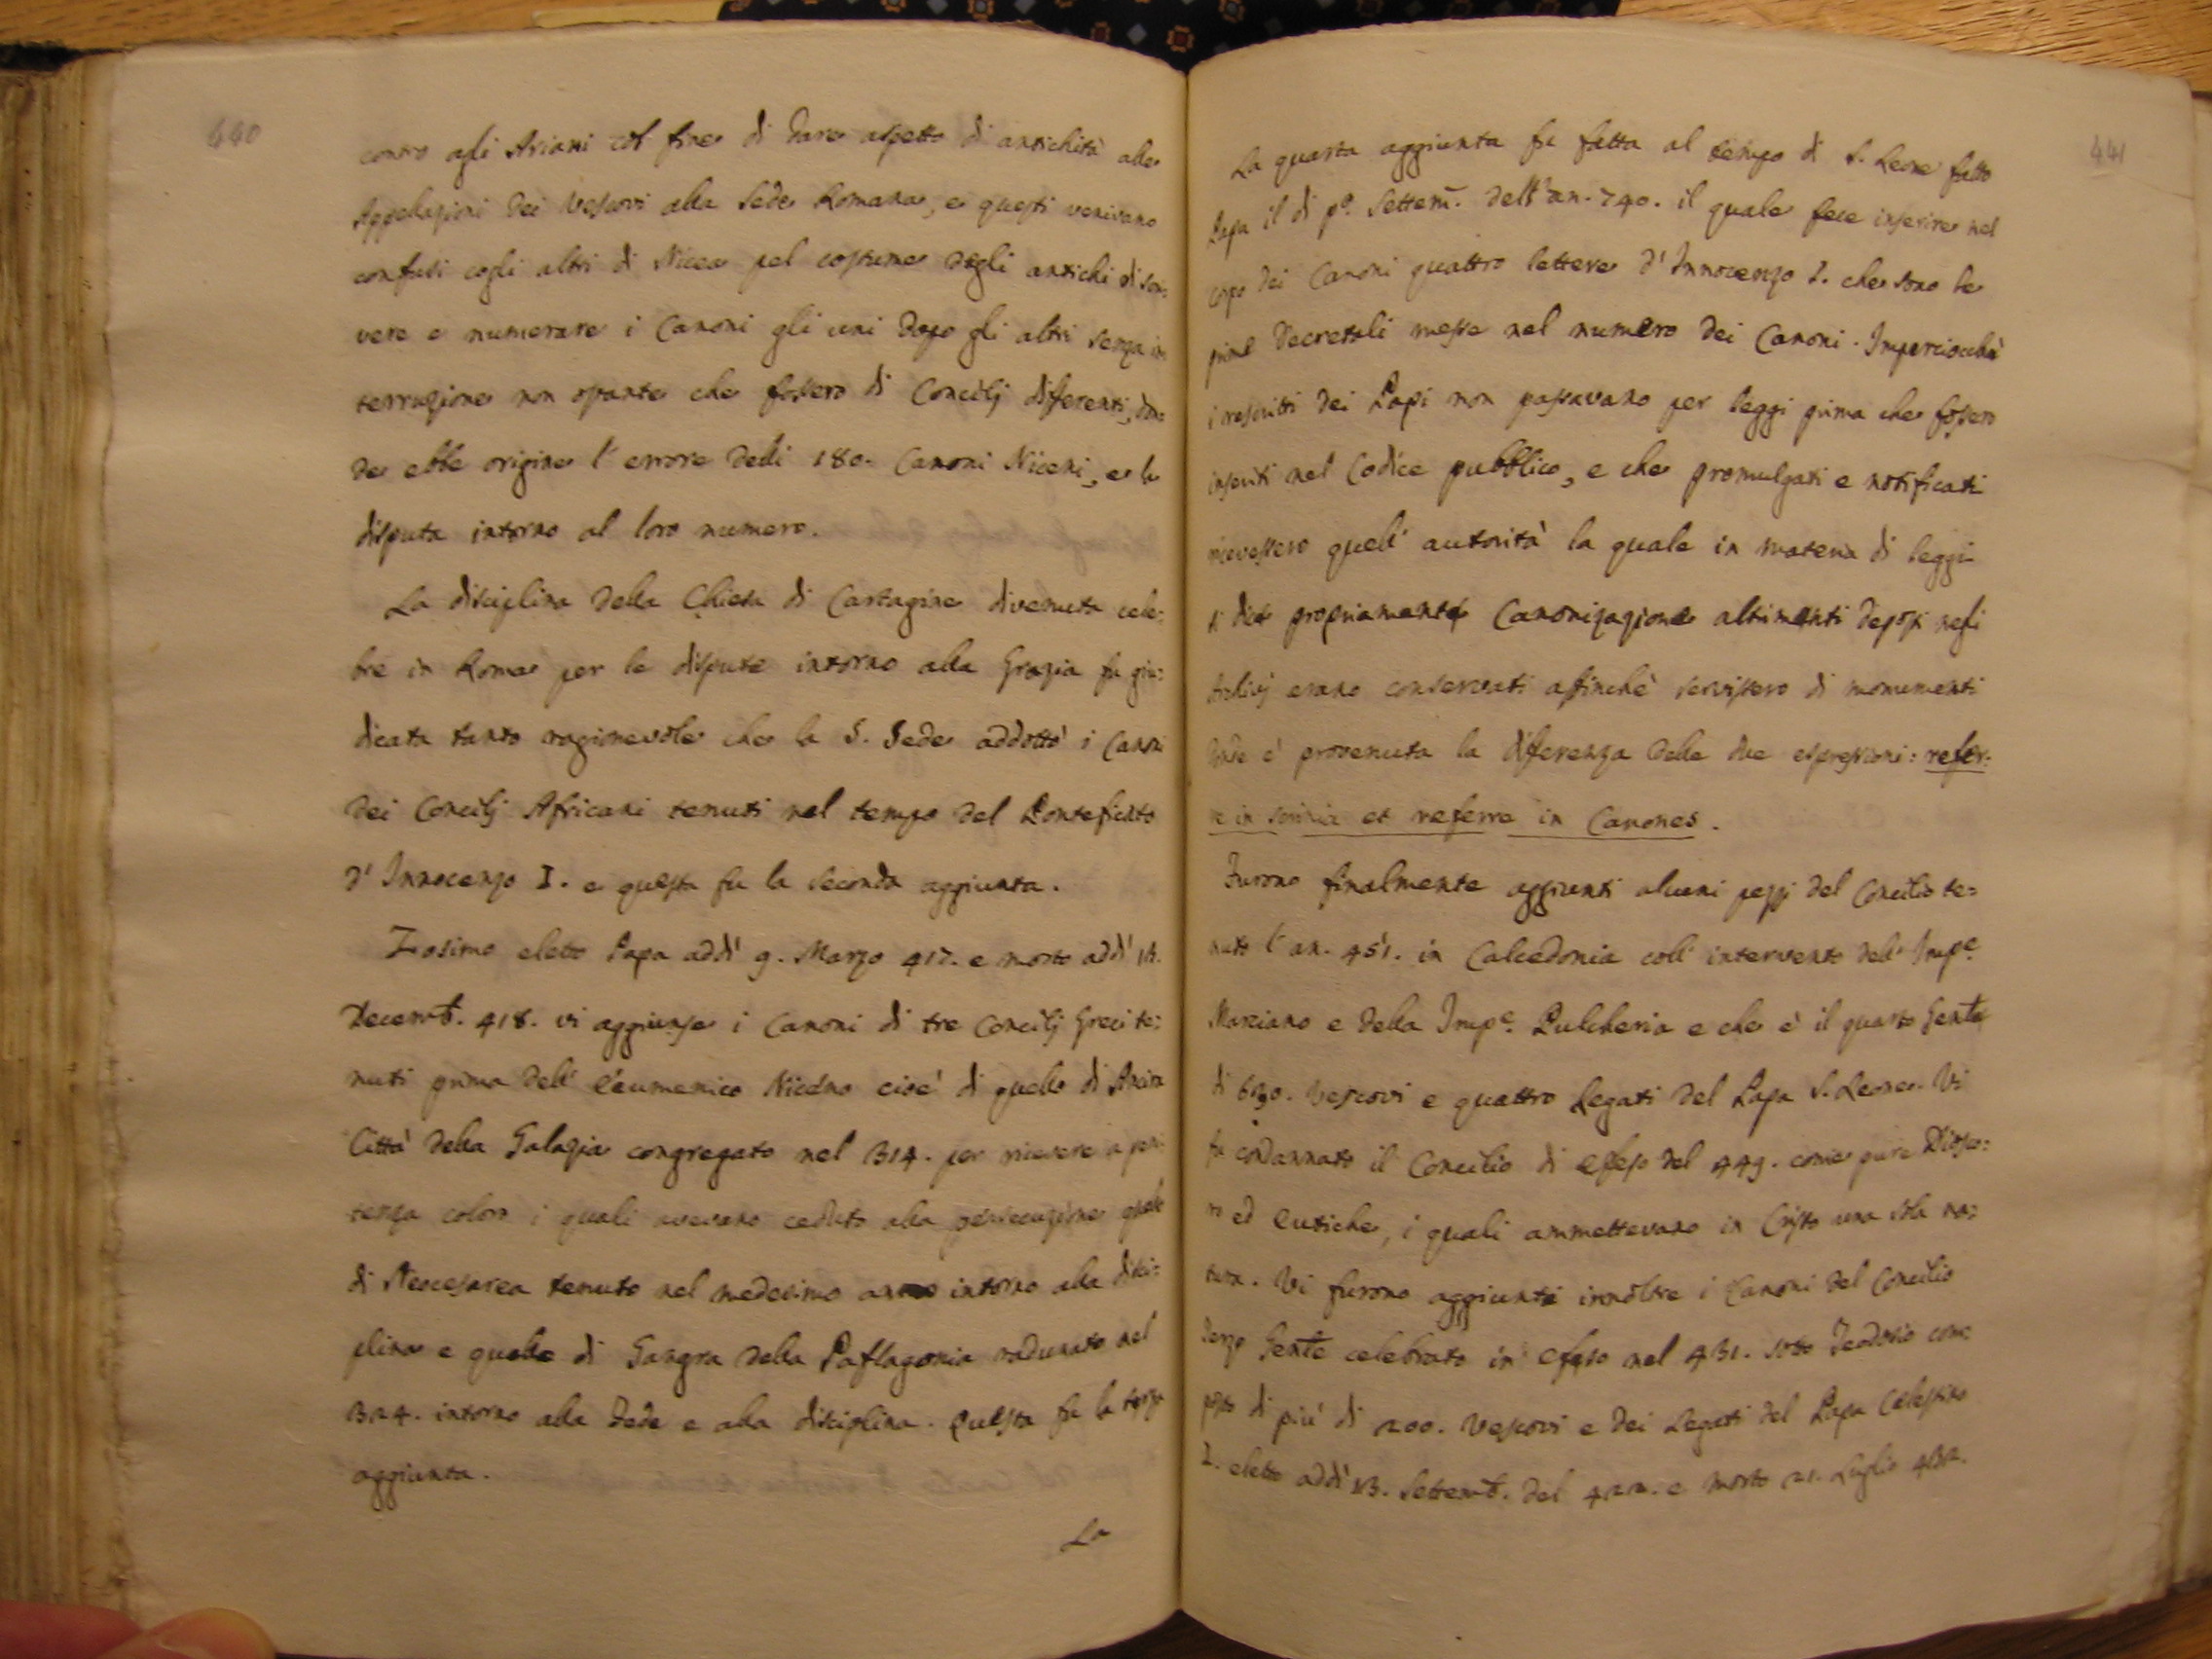 440
contro agli Ariani col fine di dare aspetto di antichità alle
Appellazioni dei Vescovi alla Sede Romana, e questi venivano
confusi cogli altri di Nicea pel costume degli antichi di scri=
vere e numerare i Canoni gli uni dopo gli altri senza in
terruzione non ostante che fossero di Concilj differenti, don=
de ebbe origine l'errore delli 180. Canoni Niceni, e la
disputa intorno al loro numero.
La disciplina della Chiesa di Cartagine divenuta cele=
bre in Roma per le dispute intorno alla Grazia fu giu=
dicata tanto ragionevole che la S. Sede addottò i Canoni
dei Concilj Africani tenuti nel tempo del Ponteficato
d'Innocenzo I. e questa fu la seconda aggiunta.
Zosimo eletto Papa addì 9. Marzo 417. e morto addì
Decemb. 418. vi aggiunse i Canoni di tre Concilj Greci te=
nuti prima dell' Ecumenico Niceno cioè di quello di Ancira
Città della Galazia congregato nel 314. per ricevere a peni
tenza coloro i quali avevano ceduto alla persecuzione quello
di Neocesarea tenuto nel medesimo anno intorno alla disci=
plina e quello di Gangra della Paflagonia radunato nel
324. intorno alla Fede e alla disciplina. Questa fu la terza
aggiunta.
La
441
La quarta aggiunta fu fatta al tempo di S. Leone fatto
Papa il di po. Settem. dell'an. 740. il quale fece inserire nel
corpo dei Canoni quattro lettere d'Innocenzo I. che sono le
prime Decretali messe nel numero dei Canoni. Imperciocchè
i rescritti dei Papi non passavano per leggi prima che fossero
inseriti nel Codice pubblico, e che promulgati e notificati
ricevessero quell' autorità la quale in materia di leggi
si dice propriamente Canonizazione altimenti deposti negli
Archivj erano conservati affinchè servissero di monumenti
donde è provenuta la differenza delle due espressioni: refer=
re in scrinia et referre in Canones.
Furono finalmente aggiunti alcuni pezzi del Concilio te=
nuto l'an. 451. in Calcedonia coll' intervento dell' Impe.
Marciano e della Impe. Pulcheria e che è il quarto Genle
di 630. Vescovi e quattro Legati del Papa S. Leone. Vi
fu condannato il Concilio di Efeso del 449. come pure Diosco=
ro ed Eutiche, i quali ammettevano in Cristo una sola na=
tura. Vi furono aggiunti innoltre i Canoni del Concilio
Terzo Genle celebrato in Efeso nel 431. sotto Teodosio com=
posto di più di 200. Vescovi e dei Legati del Papa Celestino
I. eletto addì 13. Settemb. del 422. e morto 21. Luglio 432.